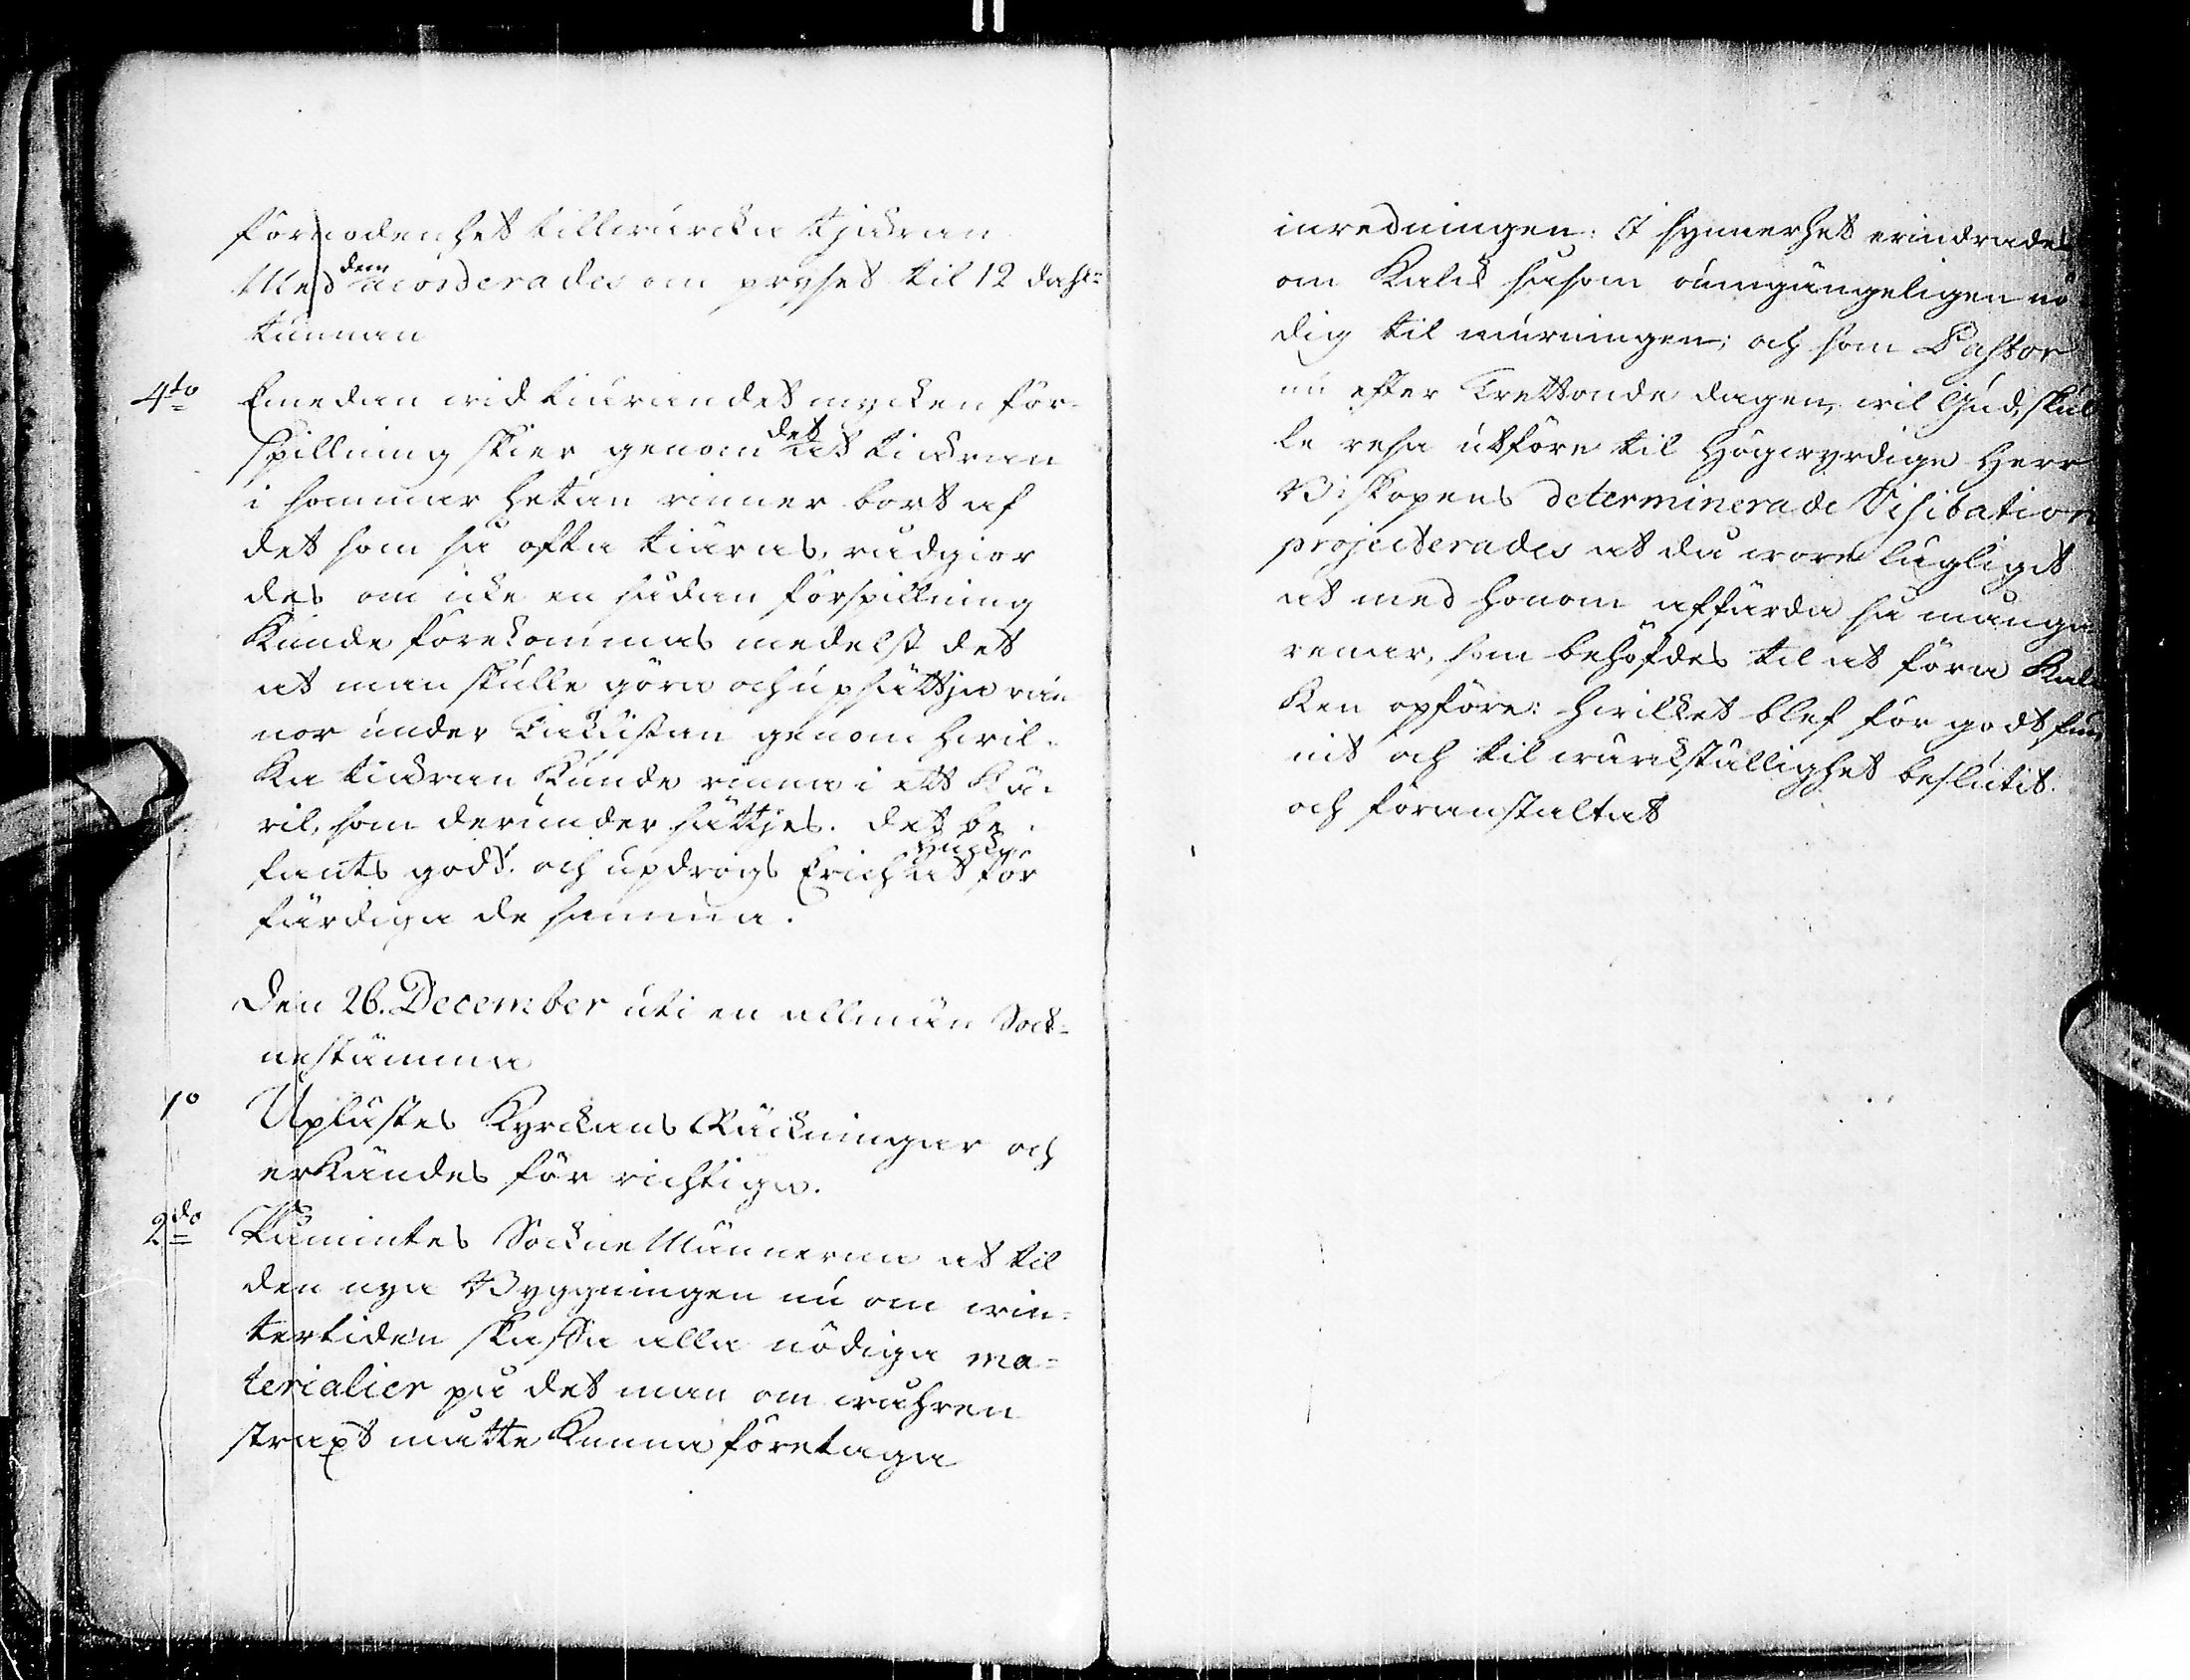 förnodenhet tillwärcka tjäran
Med dem accorderades om pryset til 12 dahl:r
tunnan
4:to Emedan wid tiärandet mycken för-
spillning skier genom det at tiäran
i sommar hetan rinner bort af
det som så ofta tiäras, rådgior
des om icke en sådan förspillning
kunde förekommas medelst det
at man skulle göra och upsättja rän
nor under Takustan genom hwil-
ka tiäran kunde rinna i ett kä-
ril, som derunder sättjes. det be-
fants godt. och updrogs Erich at för
färdiga de samma.
Den 26. December uti en allmän Sock-
nestämma
1:o Uplästes Kyrckans Räckningar och
erkändes för richtiga.
2:do Påmintes Sockne Männerna at til
den nya Byggningen nu om win-
tertiden skaffa alla nödiga ma-
terialier på det man om wåhren
straxt måtte kunna företaga
inredningen: I synnerhet erindrades
om Kalck såsom oumgängeligen nö
dig til murningen; och som Pastor
nu efter Trettonde dagen, wil Gud, skul
le resa utföre til Högwyrdige Herr
Biskopens determinerade Visitation
projecterades at då wore lägligit
at med honom affärda så många
renar, som behöfdes til at föra Kal
ken opföre: hwilket blef för godt fun
nit och til wärckställighet beslutit
och föranstaltat